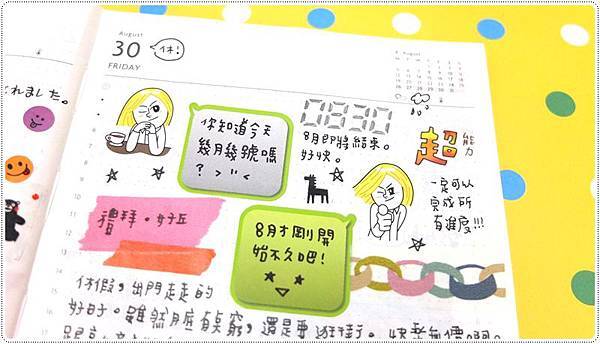 August
30
FRIDAY
休!
August
れました。
你知道今天
幾月幾號嗎
? > " <
0830
8月即將結束。
好快。
超能力
一定可以
完成所
有進度!!!
禮拜。好五
8月才剛開
始不久吧!
休假,出門走走的
好日子。雖然月底有點窮,還是要逛街。快樂無價啊。